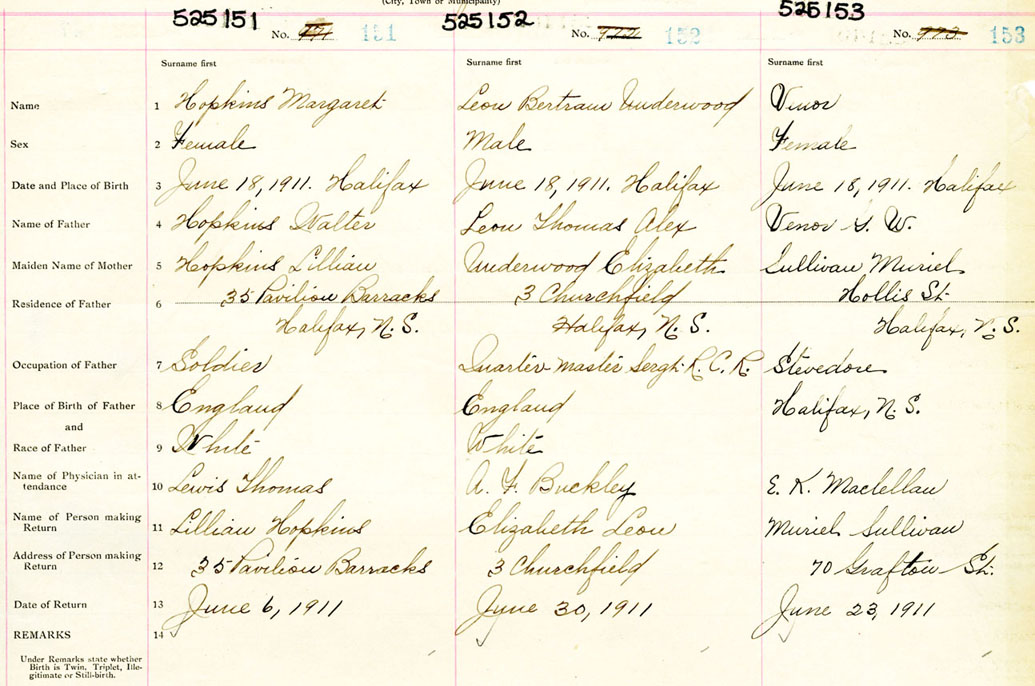 (City, Town or Municipality)
525151 525152 525153
No. 151 No. 152 No. 153
Surname first Surname first Surname first
Name 1 Hopkins Margaret Leon Bertram Underwood Venor
Sex 2 Female Male Female
Date and Place of Birth 3 June 18, 1911. Halifax June 18, 1911. Halifax June 18, 1911. Halifax
Name of Father 4 Hopkins Walter Leon Thomas Alex Venor W.
Maiden Name of Mother 5 Hopkins Lillian Underwood Elizabeth Sullivan Muriel
Residence of Father 6 35 Pavilion Barracks 3 Churchfield Hollis St.
Halifax, N.S. Halifax, N.S. Halifax, N.S.
Occupation of Father 7 Soldier Quarter master Sergt. R.C.R. Stevedore
Place of Birth of Father 8 England England Halifax, N.S.
and
Race of Father 9 White White
Name of Physician in at-
tendance 10 Lewis Thomas A. F. Buckley E. K. Maclellan
Name of Person making
Return 11 Lillian Hopkins Elizabeth Leon Muriel Sullivan
Address of Person making
Return 12 35 Pavilion Barracks 3 Churchfield 70 Grafton St.
Date of Return 13 June 6, 1911 June 30, 1911 June 23, 1911
REMARKS 14
Under Remarks state whether
Birth is Twin, Triplet, Ille-
gitimate or Still-birth.